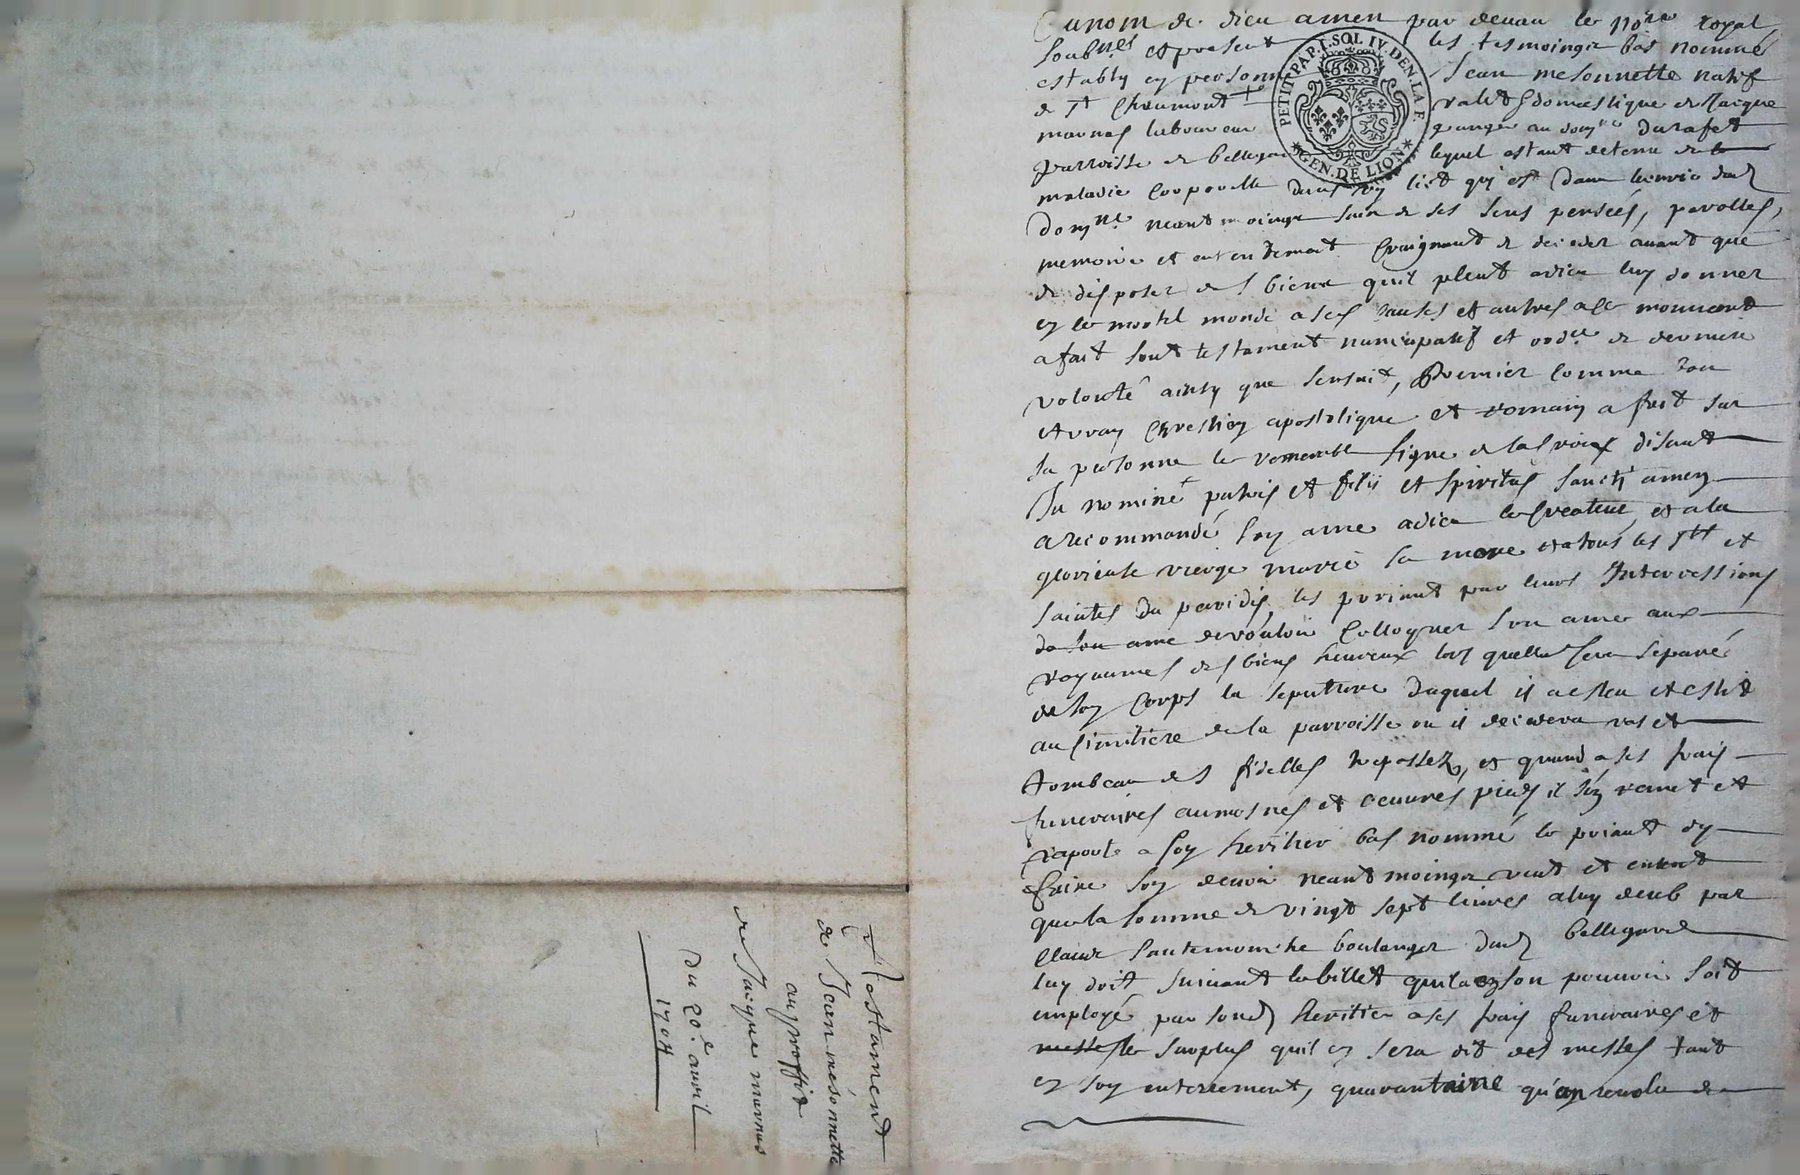 Testament
de Jean mesonnette
au proffit
de Jacque marnas
Du 20e. avril
1704
Au nom de dieu amen par devan le nore royal
soubnes et present les tesmoings bas nommé
estably en personne Jean mesonnette natif
de st chaumont valet domestique de Jacque
marnas laboureur granger au domne
parroisse de bellegarde lequel estant detenu de
maladie corporelle dans son lict qui est dans
domne neantmoings sain de ses sens pensées, parolles,
memoire et entendement craignant de deceder avant que
de disposer des biens quil pleut a dieu luy donner
en ce mortel monde a ses causes et autres a ce mouvent
a fait sont testament nuncupatif et ordre de derniere
volonté ainsy que sensuit, Premier comme bon
et vray chrestien apostolique et romain a fait sur
sa personne le venerable signe de la croix disant
In nomine patris et filii et spiritus sancti amen
a recommandé son ame a dieu le createur et a la
glorieuse vierge marie sa mere et a tous les sts et
saintes du paradis, les priant par leurs Intercessions
de son ame de vouloir colloquer son ame aux
royaumes des biens heureux lors quelle sera separé
de son corps la sepulture duquel il a esleu et eslit
au cimitiere de la parroisse ou il decedera vas et
tombeau des fidelles trepassez, et quand a ses frais
funeraires aumosnes et oeuvres pies il sen remet et
raporte a son heritier bas nommé le priant dy
faire son devoir neantmoings veut et entent
que la somme de vingt sept livres a luy deub par
claude boulanger dud bellegarde
luy doit suivant le billet quil a en son pouvoir soit
employé par sond heritier a ses frais funeraires et
messes le surplus quil en sera dit des messes tant
en son enterrement, quarantaine qu'an revolu de
PETIT.PAP.I.SOL.IV.DEN.LA.F.
GEN.DE.LION